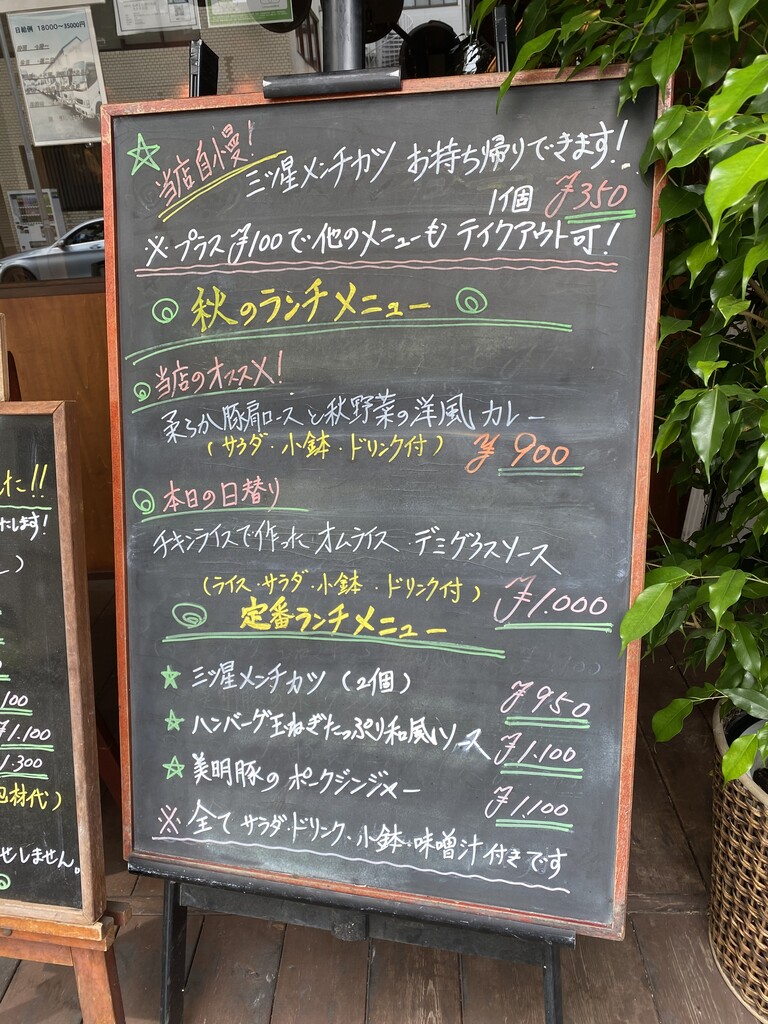 日給例 18000～35000円
当店自慢!
三ツ星メンチカツ お持ち帰りできます!
1個 ¥350
※プラス¥100で他のメニューもテイクアウト可!
秋のランチメニュー
当店のオススメ!
柔らか豚肩ロースと秋野菜の洋風カレー
(サラダ・小鉢・ドリンク付) ¥900
本日の日替り
チキンライスで作ったオムライス デミグラスソース
(ライス・サラダ・小鉢・ドリンク付) ¥1.000
定番ランチメニュー
☆ 三ツ星メンチカツ (2個) ¥950
☆ ハンバーグ玉ねぎたっぷり和風ソース ¥1.100
☆ 美明豚のポークジンジャー ¥1.100
※ 全てサラダ・ドリンク・小鉢・味噌汁付きです
た!!
たします!
)
100
¥1.100
1.300
包材代)
せしません。